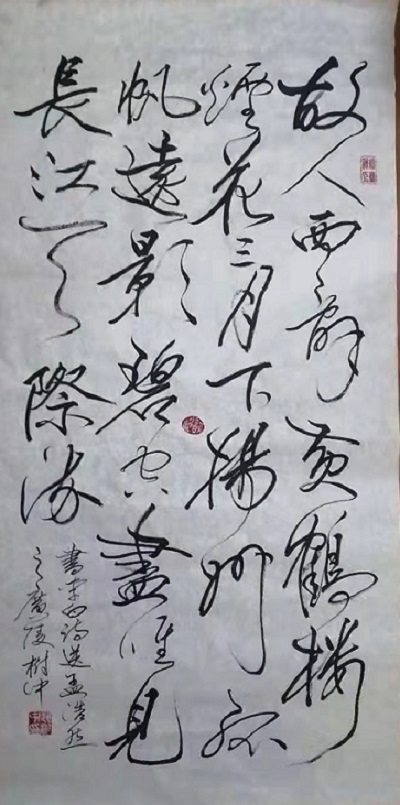 故人西辞黄鹤楼
烟花三月下揚州孤
帆遠影碧空盡唯見
長江天際流
書李白詩送孟浩然
之廣陵樹中